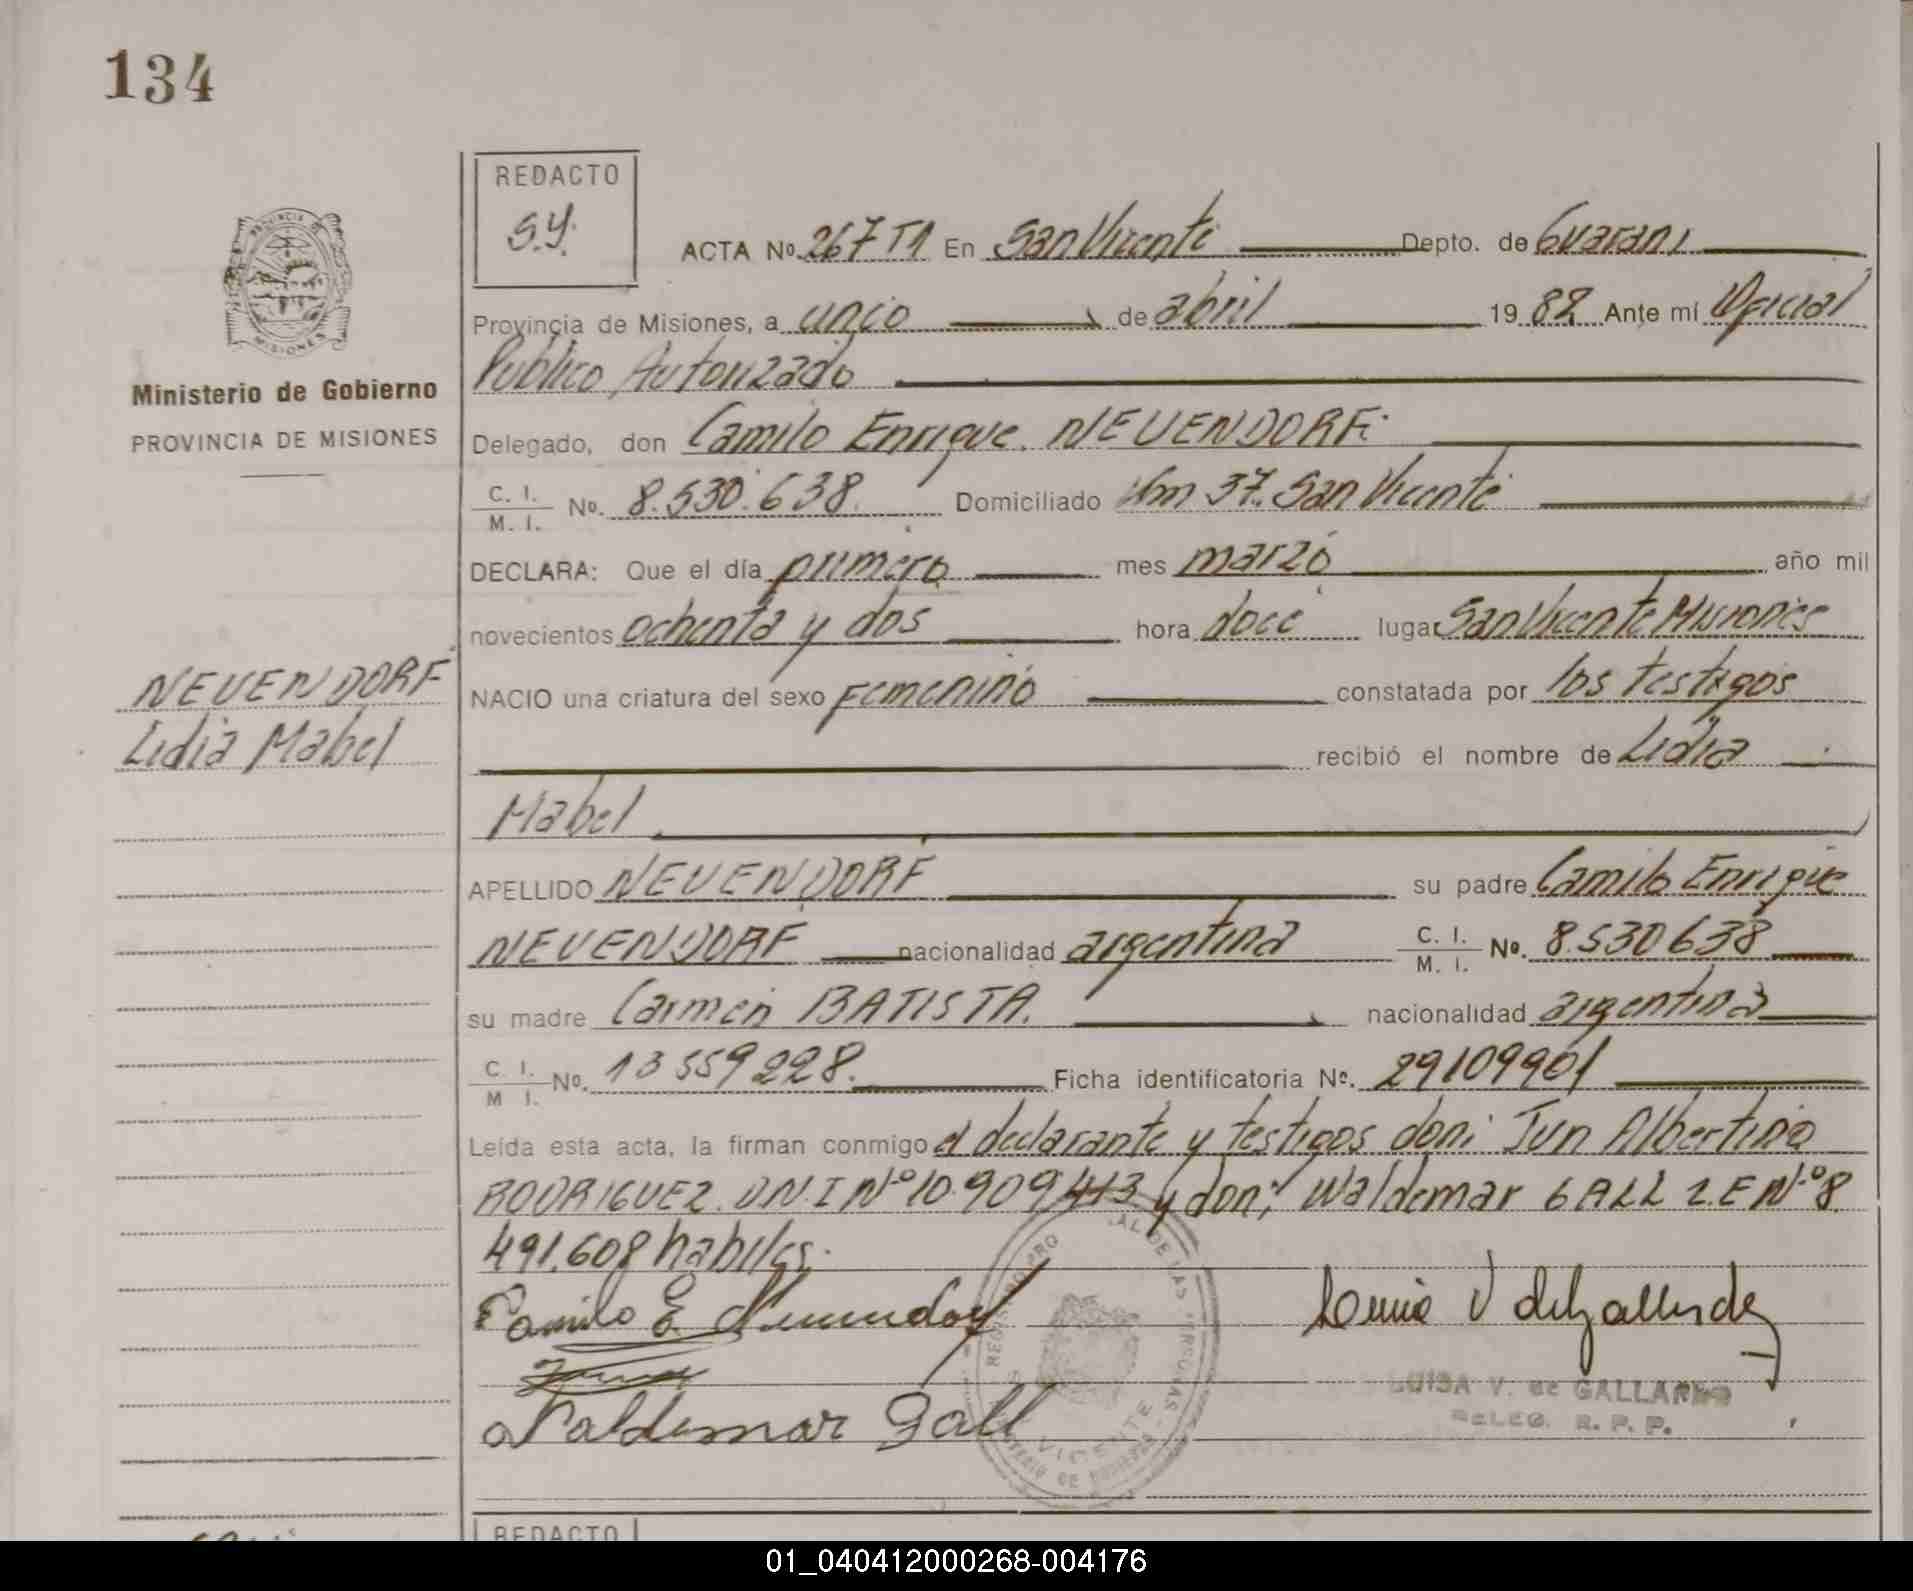 134
REDACTO
S.Y.
ACTA Nº. 267 T1 En San Vicente Depto. de Guarani
Provincia de Misiones, a uncio de abril 1982 Ante mí Oficial
Publico, Autorizado
Delegado, don Camilo Enrique. NEUENDORF.
C. I.
M. I. Nº. 8.530.638. Domiciliado Km 37. San Vicente
DECLARA: Que el día primero mes marzo año mil
novecientos ochenta y dos hora doce lugar San Vicente Misiones
NACIO una criatura del sexo Femenino constatada por los testigos
recibió el nombre de Lidia
Mabel
APELLIDO NEUENDORF su padre Camilo Enrique
NEUENDORF nacionalidad argentina C. I.
M. I. Nº. 8.530638
su madre Carmen BATISTA. nacionalidad argentina
C. I.
M I. Nº. 13559228. Ficha identificatoria Nº. 29109901
Leída esta acta, la firman conmigo el declarante y testigos don: Iun Albertino
RODRIGUEZ. DN.I Nº 10.909413 y don; Waldemar GALL L.E Nº 8.
491.608 habiles.
Camilo E. Neuendorf
Waldemar Gall
LUISA V. de GALLARDO
DELEG. R. P. P.
VICENTE
PROVINCIA DE
MISIONES
Ministerio de Gobierno
PROVINCIA DE MISIONES
NEUENDORF
Lidia Mabel
REDACTO
01_040412000268-004176